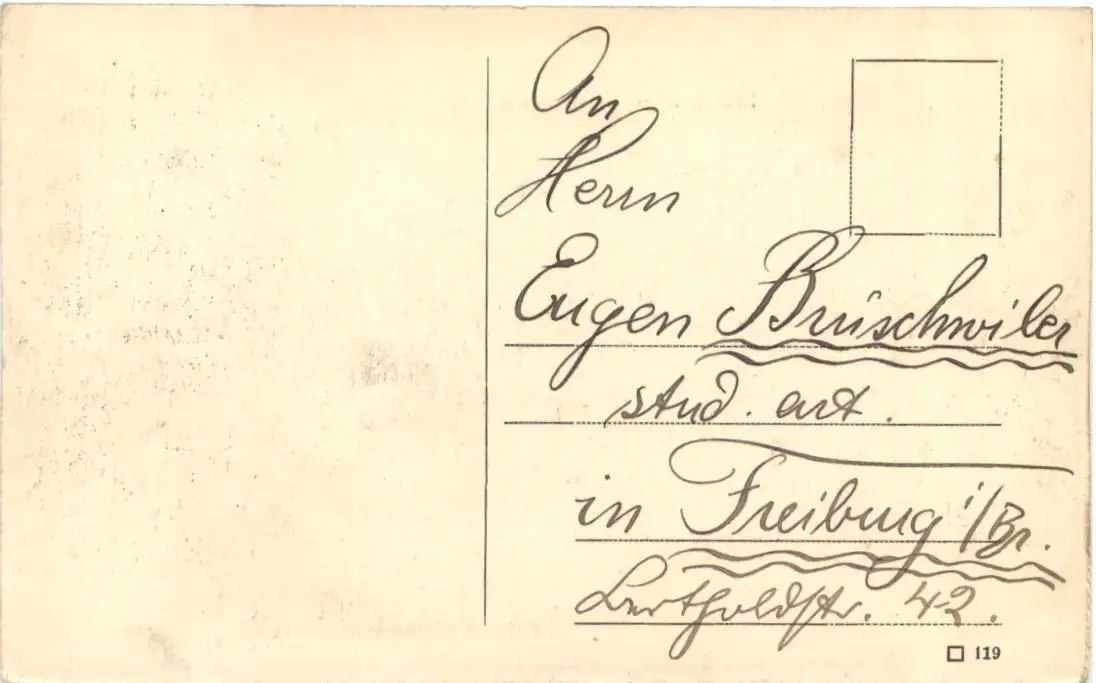 An
Herrn
Eugen Brüschwiler
stud. art.
in Freiburg i/Br.
Bertholdstr. 42.
119